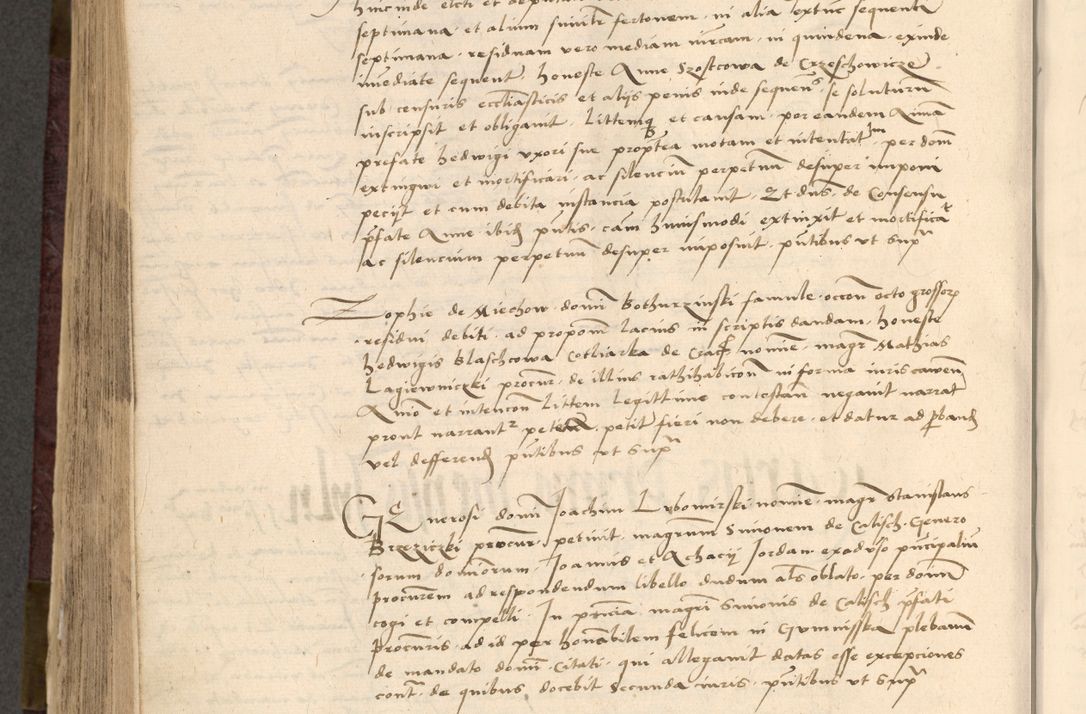 septimana et alium similr fertonem in alia extunc sequenti
septimana residuam vero mediam mrcam in quindena exinde
imediate sequent honeste Anne Szostcowa de Crzeschowicze
sub censuris ecclīasticis et alijs penis inde sequens se soluturum
inscripsit et obligavit Littemq et causam per eandem Annā
prefate hedwigi uxori sue propterea motam et intentatā per dom
extingwi et mortificari ac silenciū perpetuum desuper imponi
pecijt et cum debita instancia postulavit Et dns de consensu
pfate Anne ibidē pntis cām huiusmodi extinxit et mortificavit
ac silencium perpetuū desuper imposuit pntibus ut supra
Zophie de Miechow domī Bothurzinski famule occoē octo grossorū
residui debiti ad propoēm lacius in scriptis dandam honeste
hedwigis Blaschcowa Cotliarka de Crac noīne magr Mathias
Lagiewniczki procur de illius rathihabicoē in forma iuris caven
Animo et intencoē Littem legittime contestan negavit narrata
prout narrantr petita petit fieri non debere et datur ad pband
vel defferend pntibus ut supra
GEnerosi domī Joachim Lubomirski noīne magr Stanislaus
Brzeziczki procur petivit magrum Simonem de Calisch Genero
sorum dominorum Joannis et Achacij Jordan ex adverso principaliū
procurem ad respondendum libello dudum als oblato per domī
cogi et compelli In pntia magri Simonis de Calisch pfati
procuris ad id per honabilem felicem in Gymnisska plebanum
de mandato domī citati qui allegavit datas esse excepciones
cont de quibus docebit secunda iuris pntibus ut supra